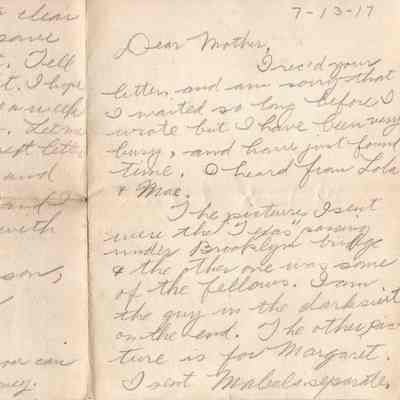 clear
save
. Tell
t. I hope
a week
. Let me
next letter
and
and I
with
son,
you can
ney.
7-13-17
Dear Mother,
I rec'd your
letter and am sorry that
I waited so long before I
wrote but I have been very
busy, and have just found
time. I heard from Lola
& Mae.
The pictures I sent
were the "Texas" passing
under Brooklyn bridge
& the other one was some
of the fellows. I am
the guy in the dark suit
on the end. The other pic-
ture is for Margaret.
I sent Mabels separate.